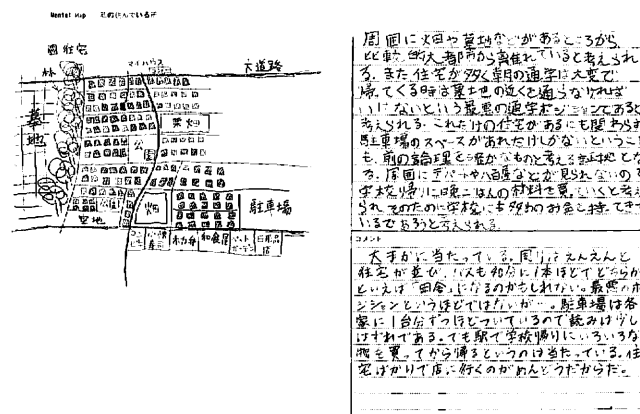 Mental Map 私の住んでいる所
園住宅
林
マイハウス
大道路
墓地
栗畑
公園
畑
駐車場
空地
コンビニ
ホカ弁
和食屋
周囲に火田や墓地などがあるところから
比較的大都市から離れていると考えられ
る。また住宅が多く朝の通学は大変で
帰てくる時は墓地の近くを通らなければ
いけないという最悪の通学ポジションであると
考えられる。これだけの住宅があるにも関わらず
駐車場のスペースがあれだけしかないということ
も、前の論理を確かなものと考える
る。周囲にデパートや八百屋などが見られないので
学校帰りに晩ごはんの材料を買っていくと考え
られ、そのために学校にも多めのお金を持てきて
いるであろうと考えられる。
コメント
大すかに当たっている。周りはえんえんと
住宅が並び、バスも40分に1本ほどでどちらか
といえば「田舎」になるのかもしれない。最悪のポ
ジションというほどではないが…。駐車場は各
家に1台分ずつほどついているので読みは少し
はずれである。でも駅で学校帰りにいろいろな
物を買ってから帰るというのは当たっている。住
宅ばかりで店に行くのがめんどうだからだ。